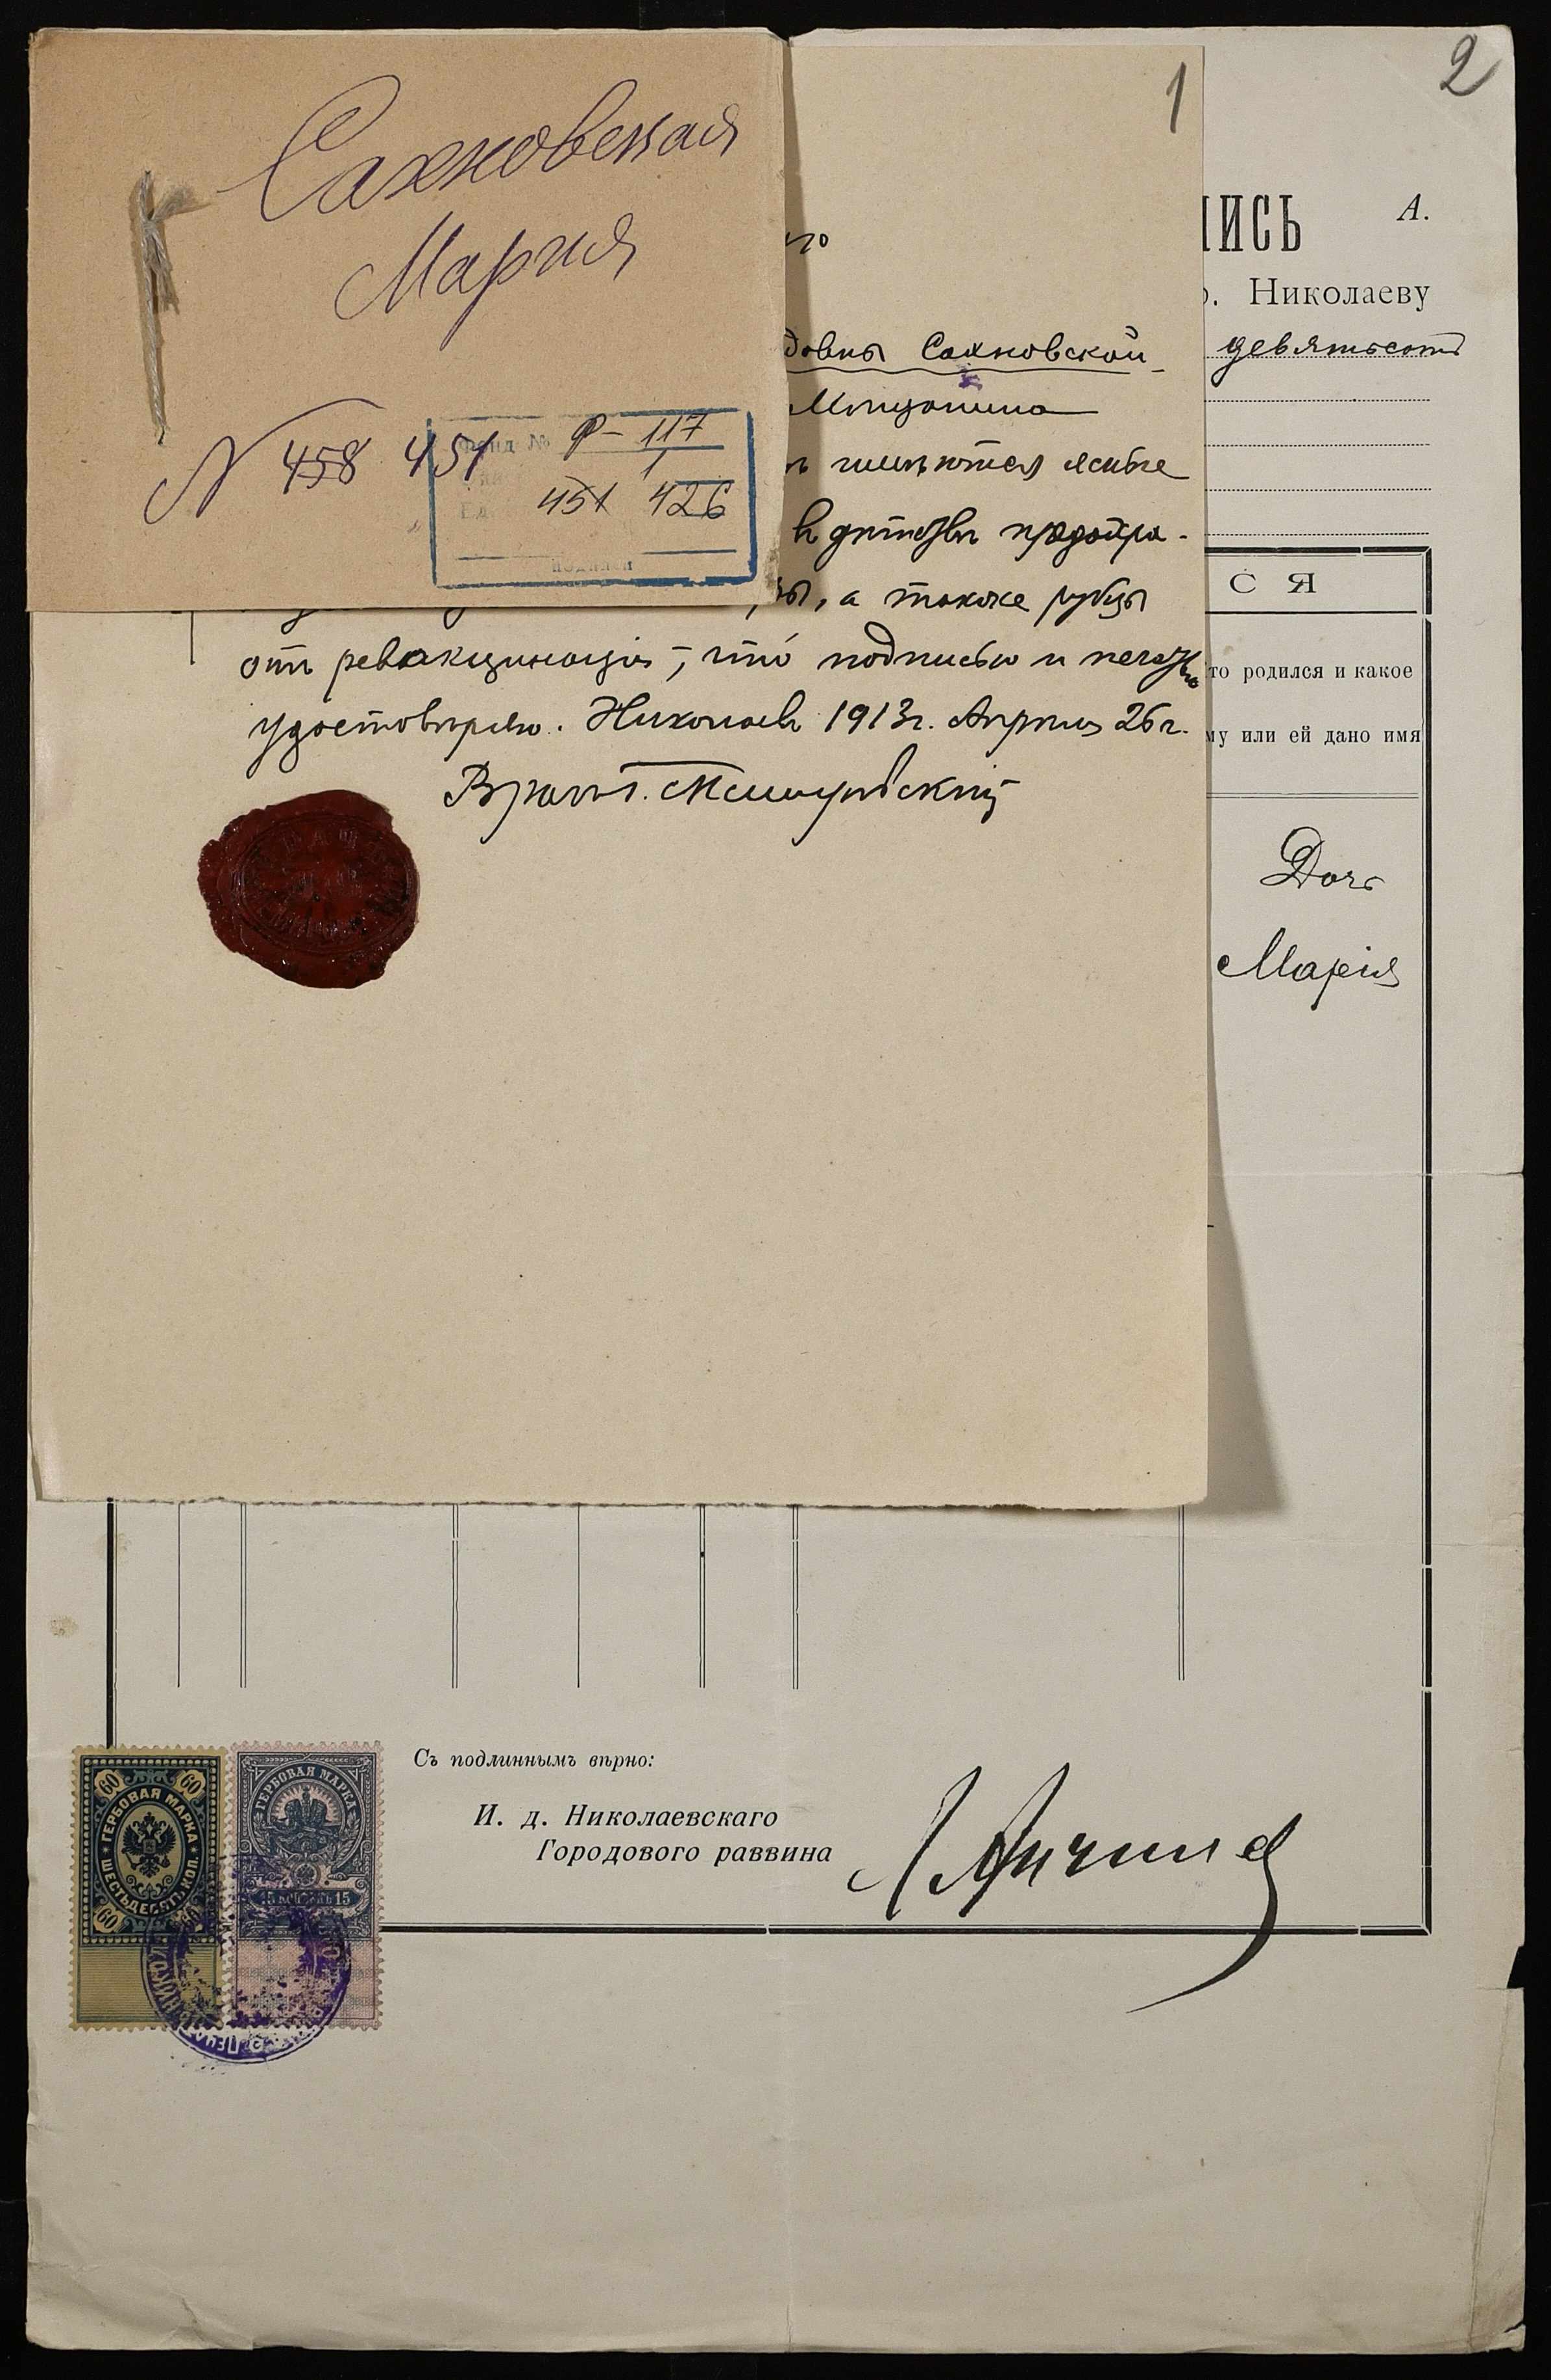 Сахновская
Мария
N 458 451
Фонд № Ф-117
1
451 426
подписи
1
довны Сахновской
имеются ясные
в детствѣ предохра-
ы, а также рубцы
отъ ревакцинаціи, что подписью и печатью
удостовѣряю. Николаевъ 1913 г. Апрѣля 26 г.
Врачъ
2
ПИСЬ
А.
Николаеву
девятьсотъ
С Я
то родился и какое
му или ей дано имя
Дочь
Марія
Съ подлиннымъ вѣрно:
И. д. Николаевскаго
Городового раввина
60 60
ГЕРБОВАЯ МАРКА
ШЕСТЬДЕСЯТЪ КОП.
60
ГЕРБОВАЯ МАРКА
15 КОПѢЕКЪ 15